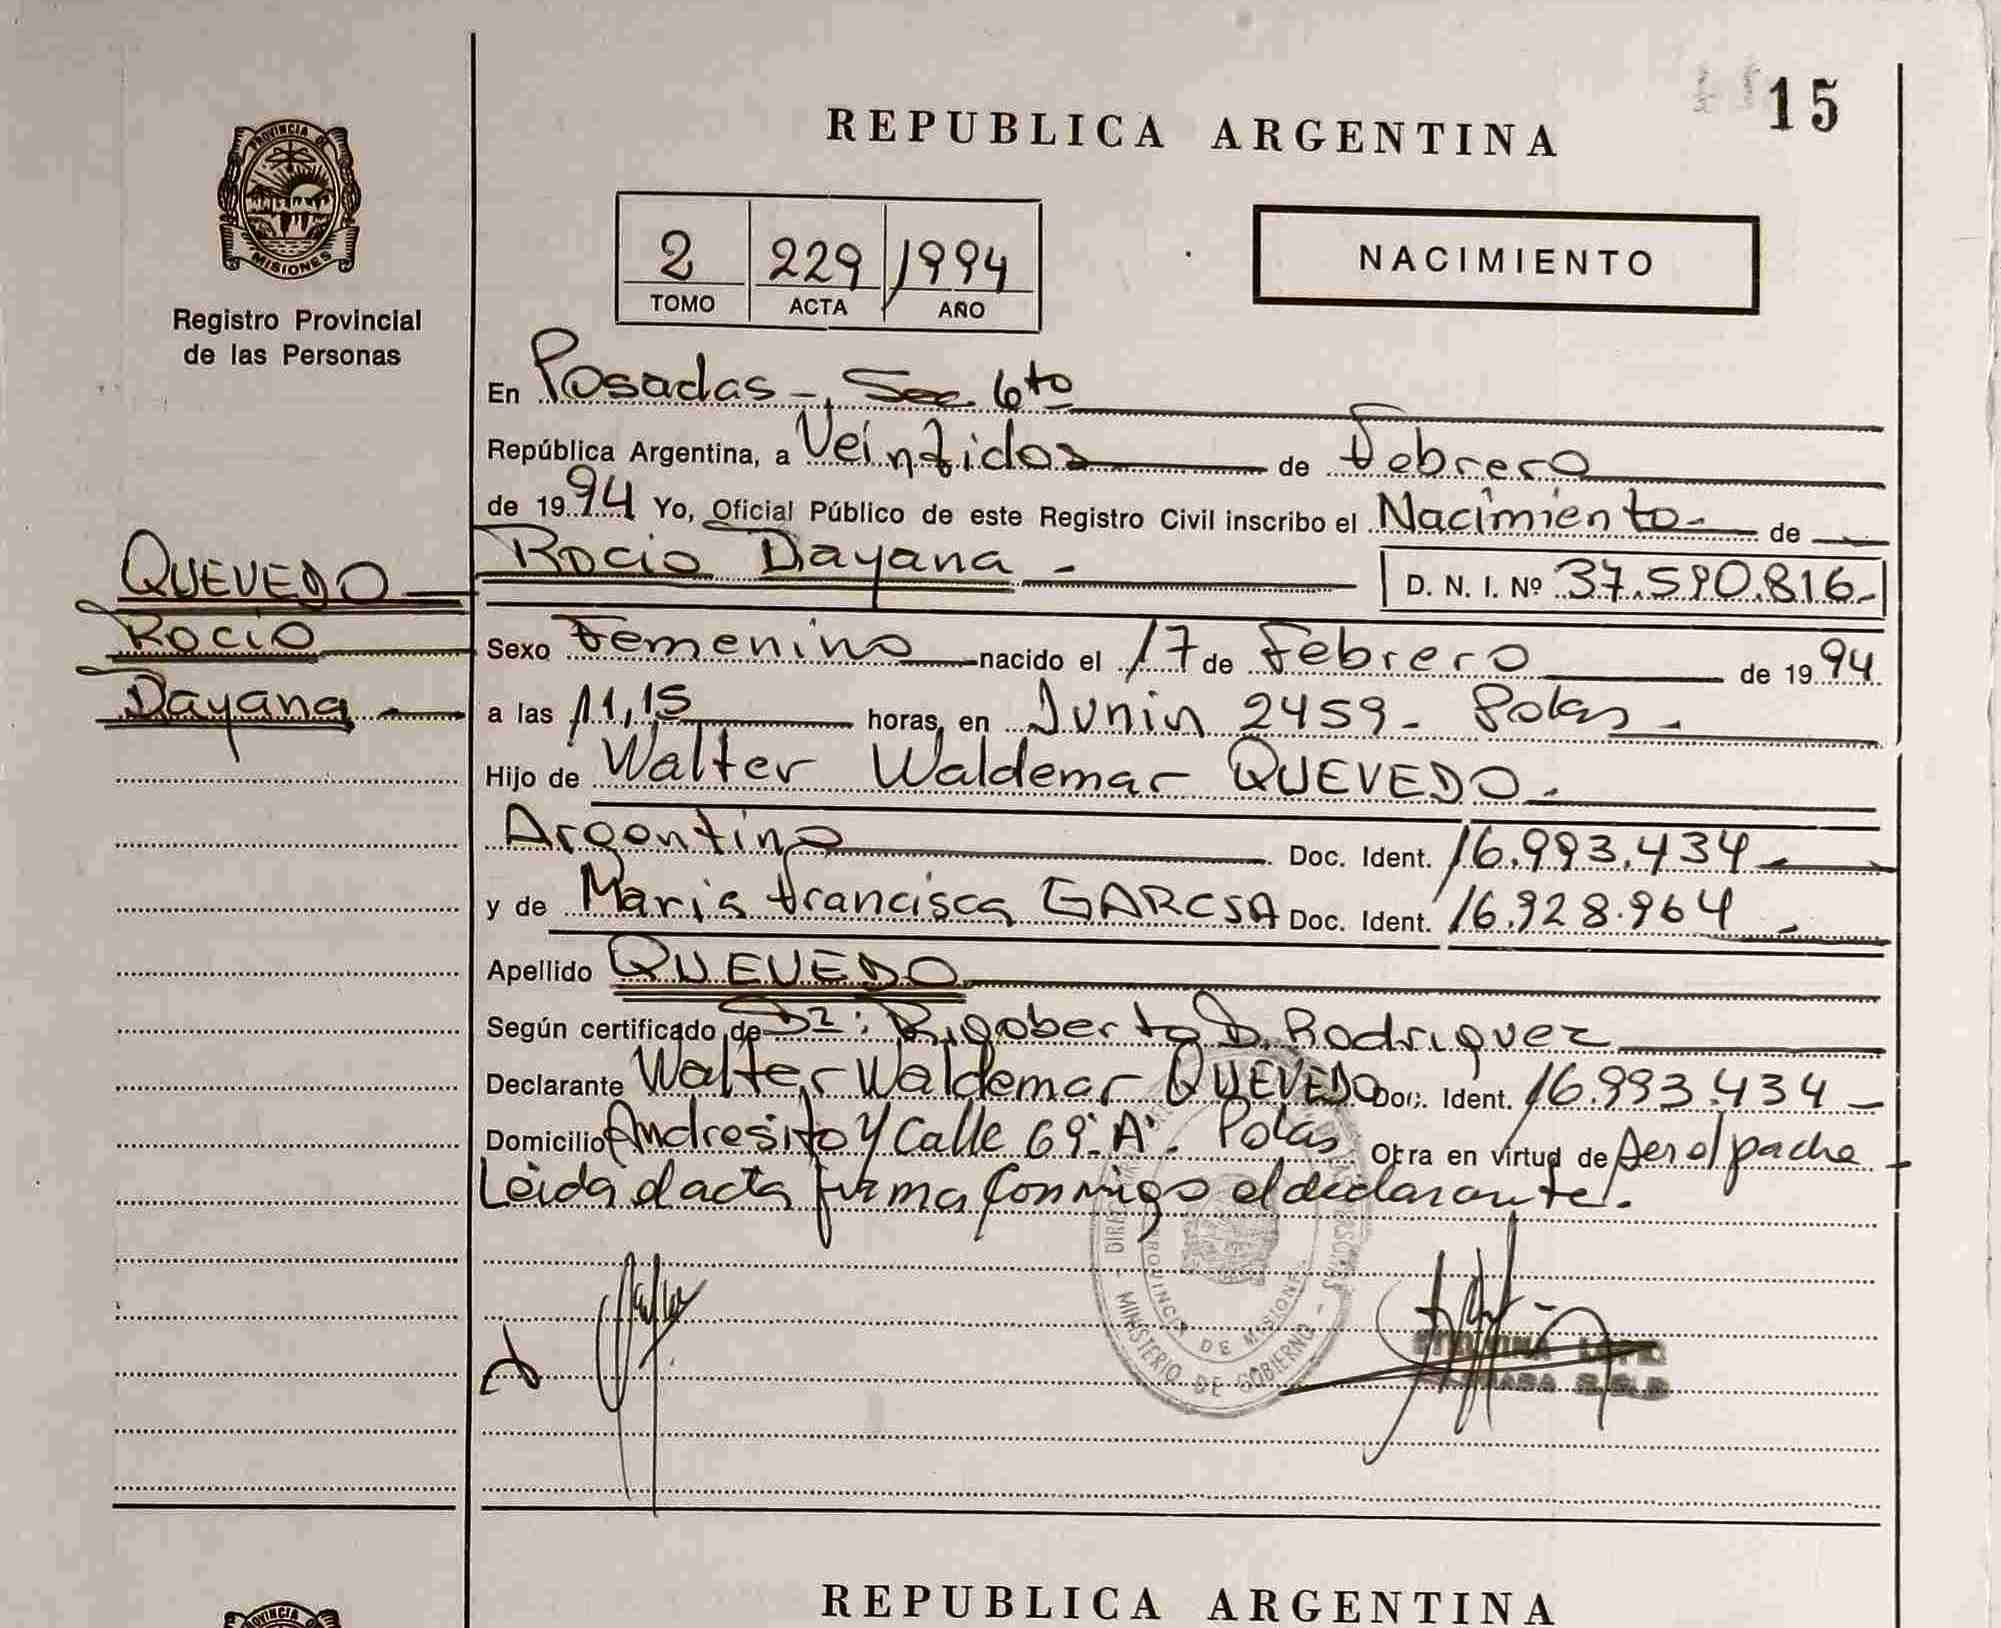 15
REPUBLICA ARGENTINA
PROVINCIA DE
MISIONES
Registro Provincial
de las Personas
2 229 1994
TOMO ACTA AÑO
NACIMIENTO
En Posadas - Sec 6to
República Argentina, a Veintidos de Febrero
de 1994 Yo, Oficial Público de este Registro Civil inscribo el Nacimiento - de
QUEVEDO
Rocio
Dayana
Rocio Dayana - D. N. I. Nº 37.590.816.-
Sexo Femenino nacido el 17 de Febrero de 1994
a las 11,15 horas, en Junin 2459 - Pdas -
Hijo de Walter Waldemar QUEVEDO -
Argentino Doc. Ident. 16.993.434
y de Maria Francisca Doc. Ident. 16.928.964 -
Apellido QUEVEDO
Según certificado de Rigoberto D. Rodriguez
Declarante Walter Waldemar QUEVEDO Doc. Ident. 16.993.434 -
Domicilio Andresito y Calle 69 "A". Pdas Otra en virtud de ser el padre
Leida el acta firma conmigo el declarante.
MINISTERIO DE GOBIERNO
PROVINCIA DE MISIONES
REPUBLICA ARGENTINA
PROVINCIA